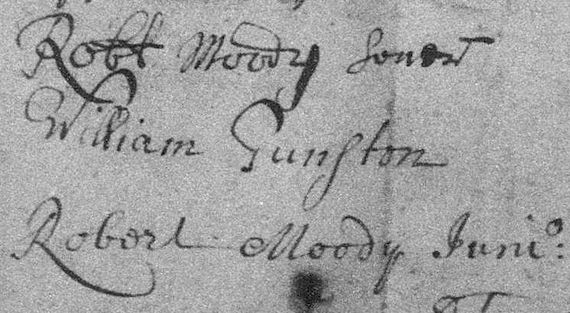 Robt Moody Sener
William Gunston
Robert Moody Junio: